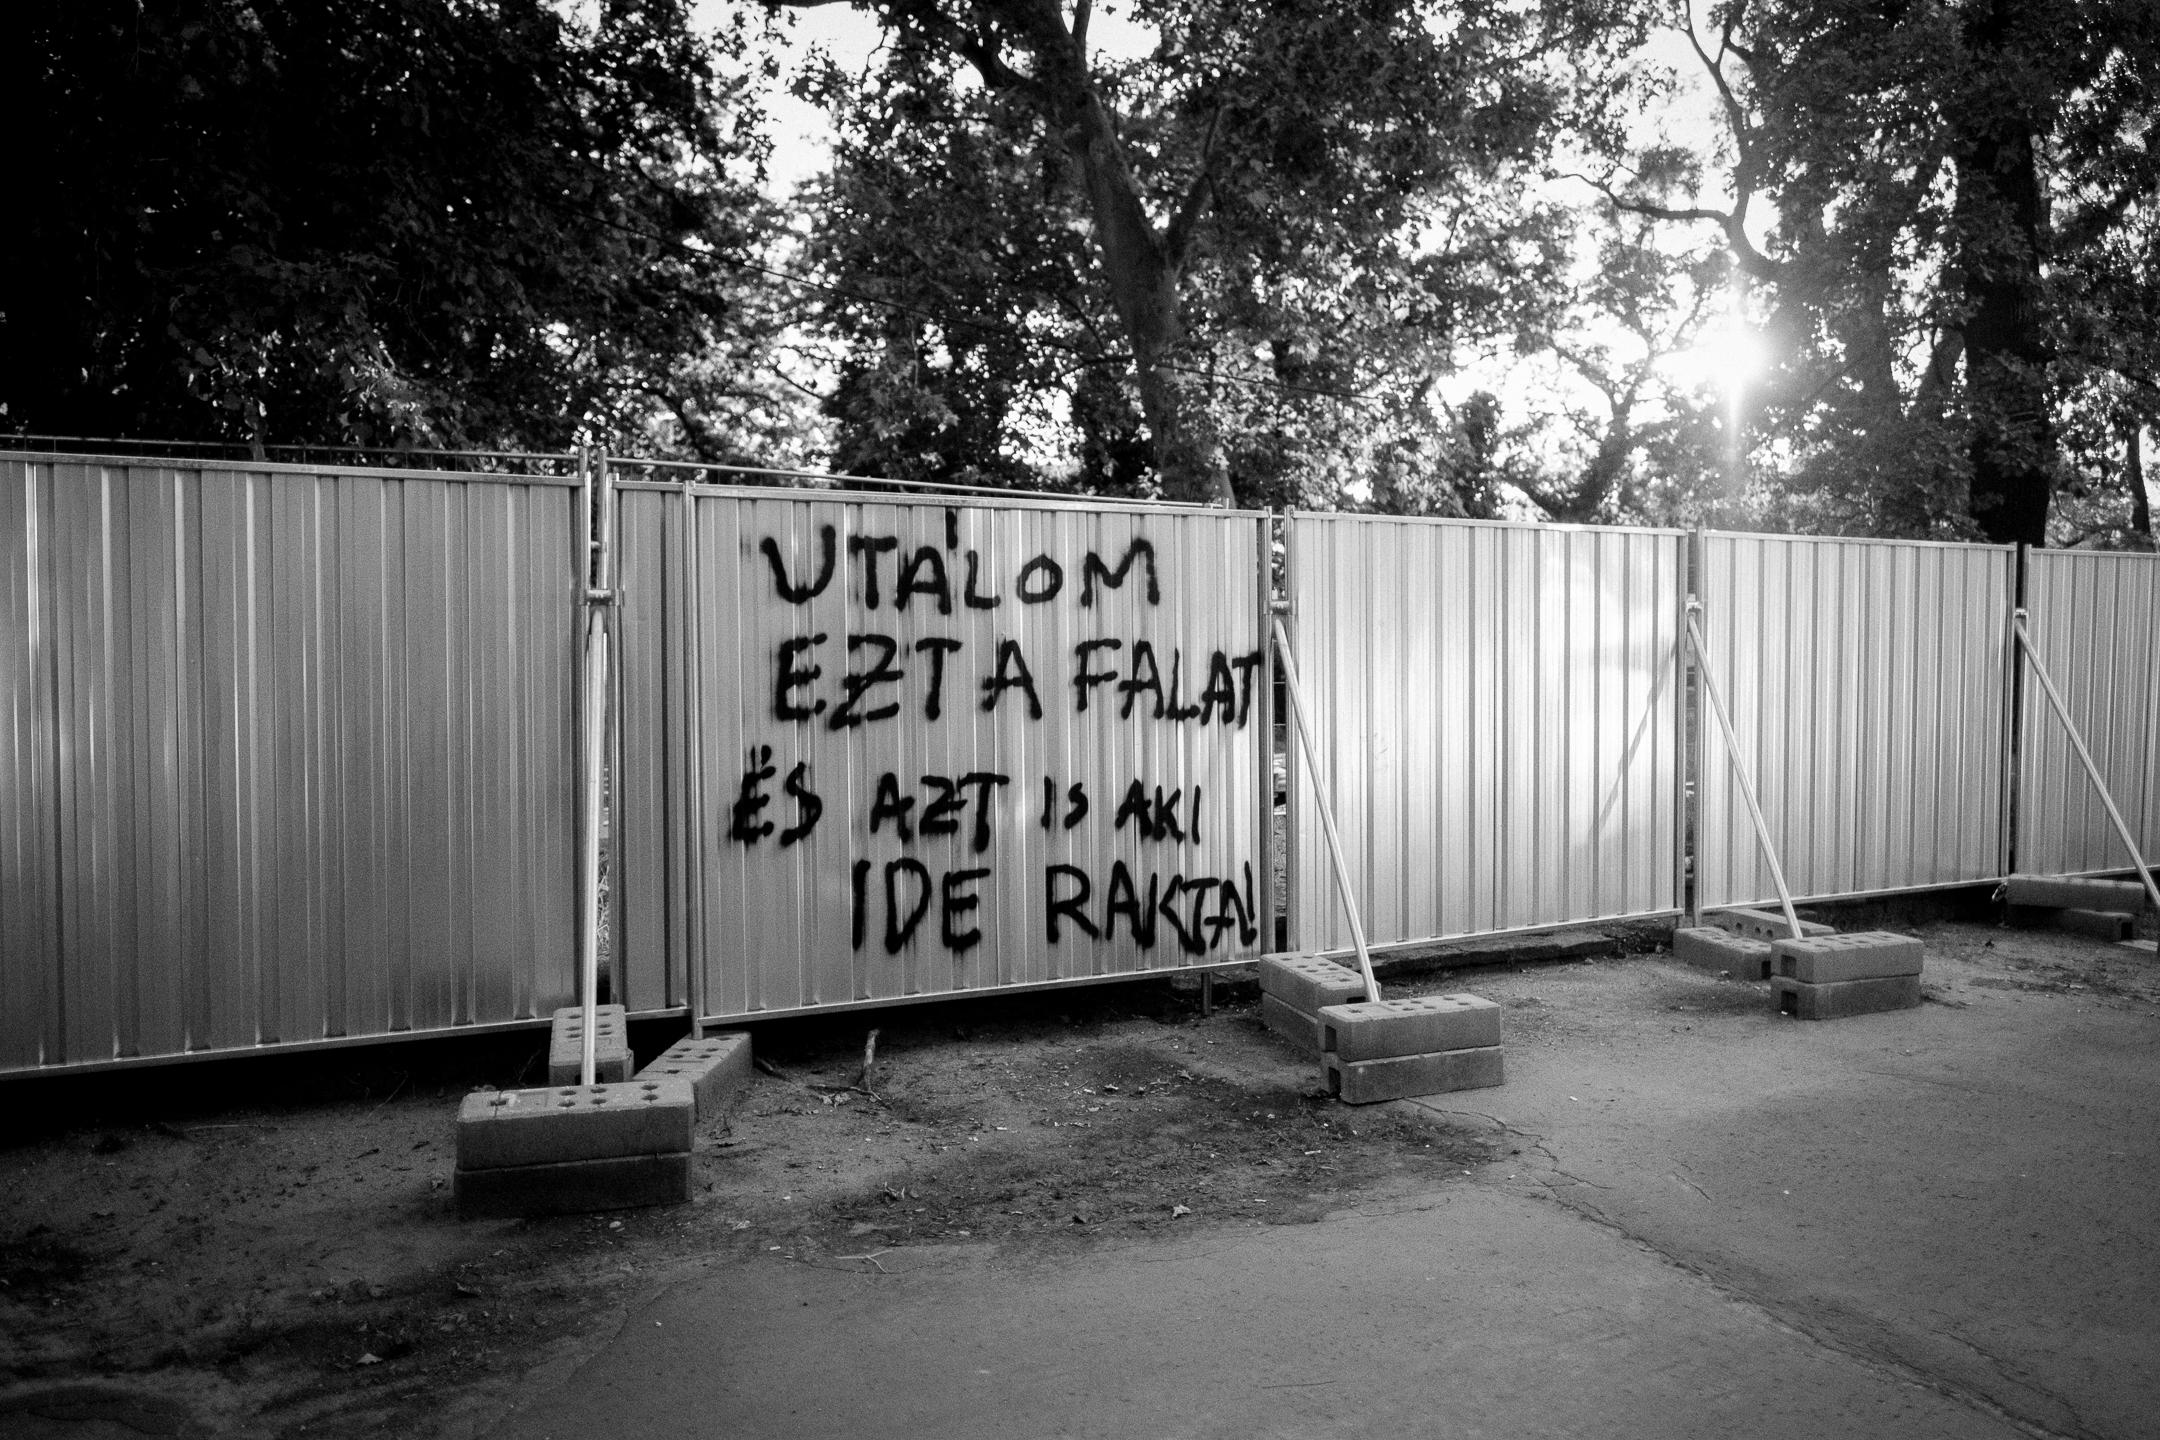 UTÁLOM
EZT A FALAT
ÉS AZT IS AKI
IDE RAKTA!